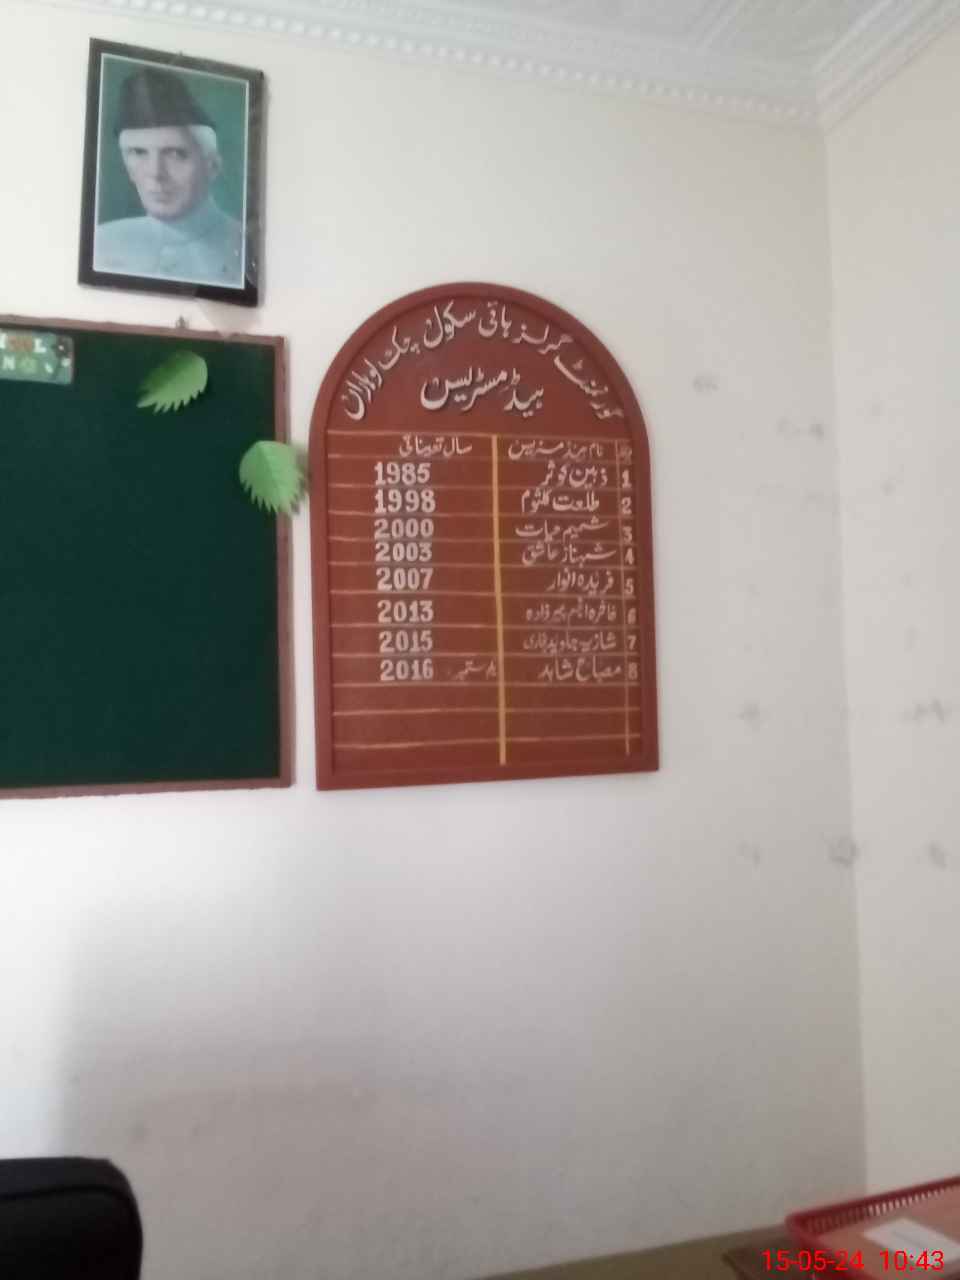 گورنمنٹ گرلز ہائی سکول چک لوہاراں
ہیڈ مسٹریس
نام ہیڈ مسٹریس سال تعیناتی
1 ذہین کوثر 1985
2 طلعت کلثوم 1998
3 شمیم حیات 2000
4 شہناز عاشق 2003
5 فریدہ انوار 2007
6 فاخرہ انجم پیرزادہ 2013
7 شازیہ جاوید 2015
8 مصباح شاہد یکم ستمبر 2016
15-05-24 10:43